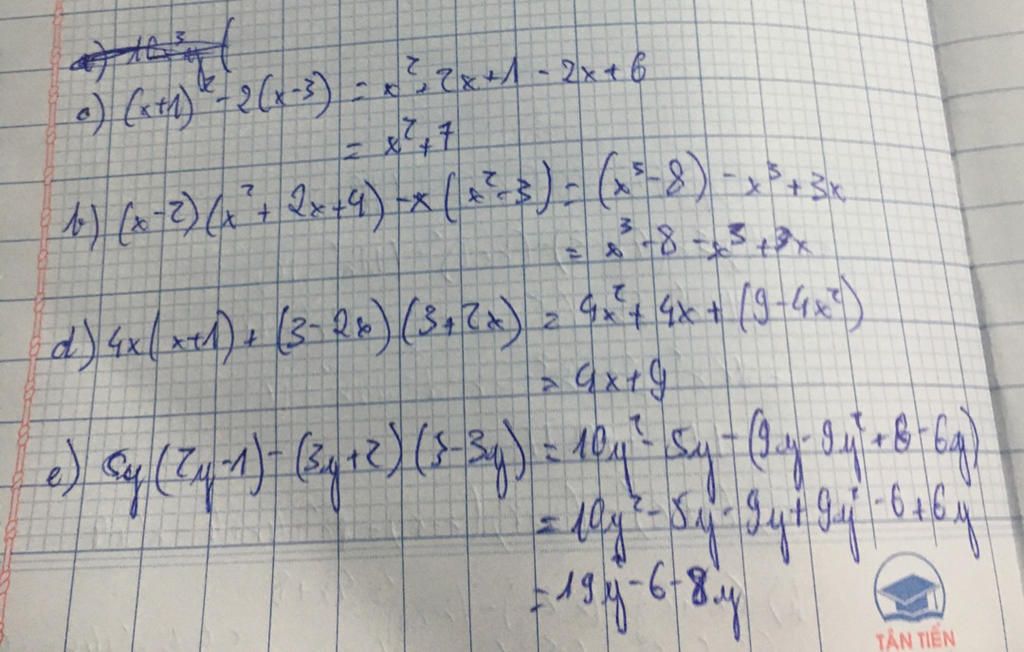 a) (x+1)² - 2(x-3) = x² + 2x + 1 - 2x + 6
= x² + 7
b) (x-2)(x² + 2x + 4) - x(x² - 3) = (x³ - 8) - x³ + 3x
= x³ - 8 - x³ + 3x
d) 4x(x+1) + (3-2x)(3+2x) = 4x² + 4x + (9 - 4x²)
= 4x + 9
e) 5y(2y-1) - (3y+2)(3-3y) = 10y² - 5y - (9y - 9y² + 6 - 6y)
= 10y² - 5y - 9y + 9y² - 6 + 6y
= 19y² - 6 - 8y
TÂN TIẾN